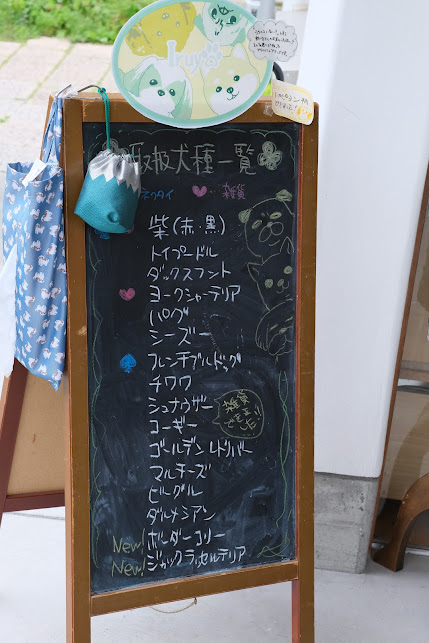 Iruya
取扱犬種一覧
ネクタイ 雑貨
柴(赤、黒)
トイプードル
ダックスフント
ヨークシャーテリア
パグ
シーズー
フレンチブルドッグ
チワワ
シュナウザー
コーギー
ゴールデンレトリバー
マルチーズ
ビーグル
ダルメシアン
New! ボーダーコリー
New! ジャックラッセルテリア
雑貨も